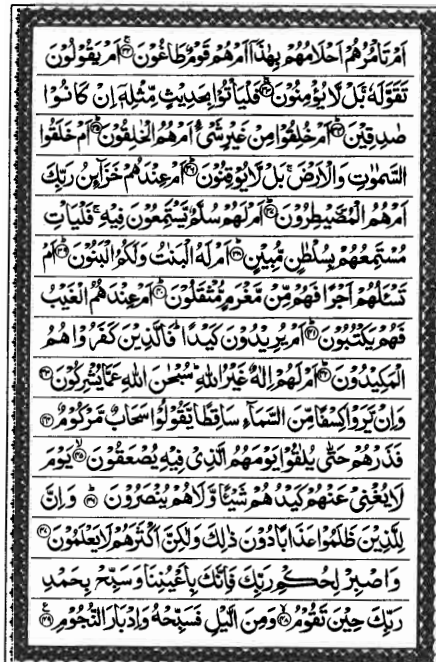 اَمْ تَاْمُرُهُمْ اَحْلَامُهُمْ بِهٰذَاۤ اَمْ هُمْ قَوْمٌ طَاغُوْنَ ۚ۝۳۲ اَمْ يَقُوْلُوْنَ
تَقَوَّلَهٗ ۚ بَلْ لَّا يُؤْمِنُوْنَ ۚ۝۳۳ فَلْيَاْتُوْا بِحَدِيْثٍ مِّثْلِهٖۤ اِنْ كَانُوْا
صٰدِقِيْنَ ؕ۝۳۴ اَمْ خُلِقُوْا مِنْ غَيْرِ شَيْءٍ اَمْ هُمُ الْخٰلِقُوْنَ ؕ۝۳۵ اَمْ خَلَقُوا
السَّمٰوٰتِ وَالْاَرْضَ ۚ بَلْ لَّا يُوْقِنُوْنَ ؕ۝۳۶ اَمْ عِنْدَهُمْ خَزَآىِٕنُ رَبِّكَ
اَمْ هُمُ الْمُصَۜيْطِرُوْنَ ؕ۝۳۷ اَمْ لَهُمْ سُلَّمٌ يَّسْتَمِعُوْنَ فِيْهِ ۚ فَلْيَاْتِ
مُسْتَمِعُهُمْ بِسُلْطٰنٍ مُّبِيْنٍ ؕ۝۳۸ اَمْ لَهُ الْبَنٰتُ وَلَكُمُ الْبَنُوْنَ ؕ۝۳۹ اَمْ
تَسْـَٔلُهُمْ اَجْرًا فَهُمْ مِّنْ مَّغْرَمٍ مُّثْقَلُوْنَ ؕ۝۴۰ اَمْ عِنْدَهُمُ الْغَيْبُ
فَهُمْ يَكْتُبُوْنَ ؕ۝۴۱ اَمْ يُرِيْدُوْنَ كَيْدًا ؕ فَالَّذِيْنَ كَفَرُوْا هُمُ
الْمَكِيْدُوْنَ ؕ۝۴۲ اَمْ لَهُمْ اِلٰهٌ غَيْرُ اللّٰهِ ؕ سُبْحٰنَ اللّٰهِ عَمَّا يُشْرِكُوْنَ ۝۴۳
وَاِنْ يَّرَوْا كِسْفًا مِّنَ السَّمَآءِ سَاقِطًا يَّقُوْلُوْا سَحَابٌ مَّرْكُوْمٌ ۝۴۴
فَذَرْهُمْ حَتّٰى يُلٰقُوْا يَوْمَهُمُ الَّذِيْ فِيْهِ يُصْعَقُوْنَ ۙ۝۴۵ يَوْمَ
لَا يُغْنِيْ عَنْهُمْ كَيْدُهُمْ شَيْـًٔا وَّلَا هُمْ يُنْصَرُوْنَ ؕ۝۴۶ وَاِنَّ
لِلَّذِيْنَ ظَلَمُوْا عَذَابًا دُوْنَ ذٰلِكَ وَلٰكِنَّ اَكْثَرَهُمْ لَا يَعْلَمُوْنَ ۝۴۷
وَاصْبِرْ لِحُكْمِ رَبِّكَ فَاِنَّكَ بِاَعْيُنِنَا وَسَبِّحْ بِحَمْدِ
رَبِّكَ حِيْنَ تَقُوْمُ ۙ۝۴۸ وَمِنَ الَّيْلِ فَسَبِّحْهُ وَاِدْبَارَ النُّجُوْمِ ۝۴۹